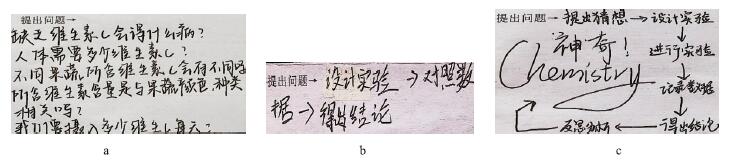 提出问题→
缺乏维生素C会得什么病？
人体需要多少维生素C？
不同果蔬所含维生素C会有不同吗
所含维生素含量是与果蔬颜色、种类
相关吗？
我们需要摄入多少维生C每天？
a
提出问题→ 设计实验 → 对照数
据 → 得出结论
b
提出问题→ 提出猜想 → 设计实验
神奇！
进行实验
Chemistry
记录数据
反思分析 ← 得出结论
c